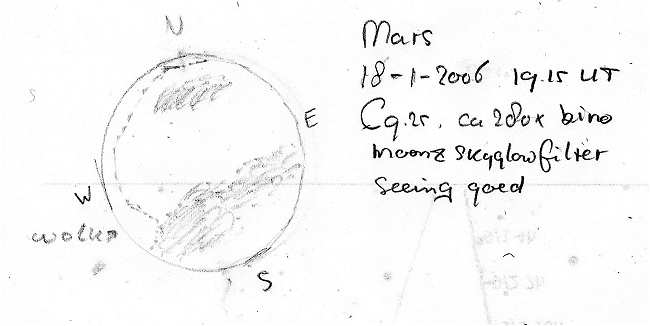 N
E
W
S
Mars
18-1-2006 19.15 UT
C9.25, ca 280x bino
moon & skyglow filter
seeing goed